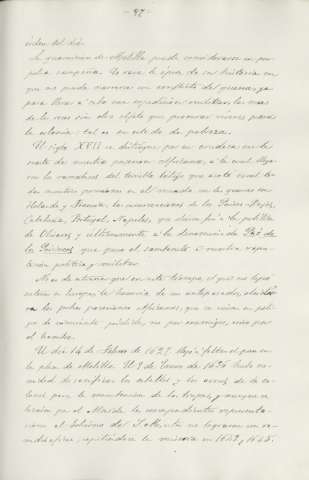 - 97 -
órden del día.
La guarnicion de Melilla puede considerarse en per-
pétua campaña. Es rara la época de su historia en
que no pueda narrarse un conflicto del guerra, ya
para llevar á cabo una espedicion militar, las mas
de las veces sin otro objeto que procurar víveres para
la colonia: tal es su estado de pobreza.
El siglo XVII se distingue por su crudeza en la
suerte de nuestras posesiones Africanas, á la cual llega-
ron los del terrible látigo que azotó en
nuestras posesiones en el mundo, en las guerras con
Holanda y Francia, las insurrecciones de los Países Bajos,
Cataluña, Portugal, Nápoles, que dieron fin á la política
de Olivares y últimamente á la Paz de
los Pirineos que puso el á nuestra repu-
tacion política y militar.
No es de estrañar que en este tiempo, el que no logró
en Europa, la herencia de sus antepasados, olvidára
las pobres posesiones Africanas, que se vieron en peli-
gro de inminente pérdida, no por enemigos, sino por
el hambre.
El dia 14 de Febrero de 1627. llegó á faltar el pan en
la plaza de Melilla. El 9 de Enero de 1636 hubo ne-
cesidad de sacrificar los caballos y los de la co-
lonia para la manutencion de las tropas, y aunque se
hicieron por el Alcaide las correspondientes representa-
ciones al Gobierno del no lograron un re-
medio eficaz, repitiéndose la miseria en 1642, y 1645.